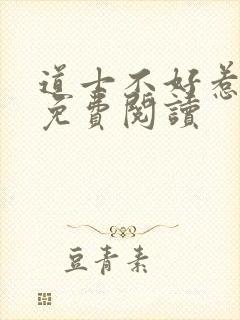 道士不好惹
免費閱讀
豆青素